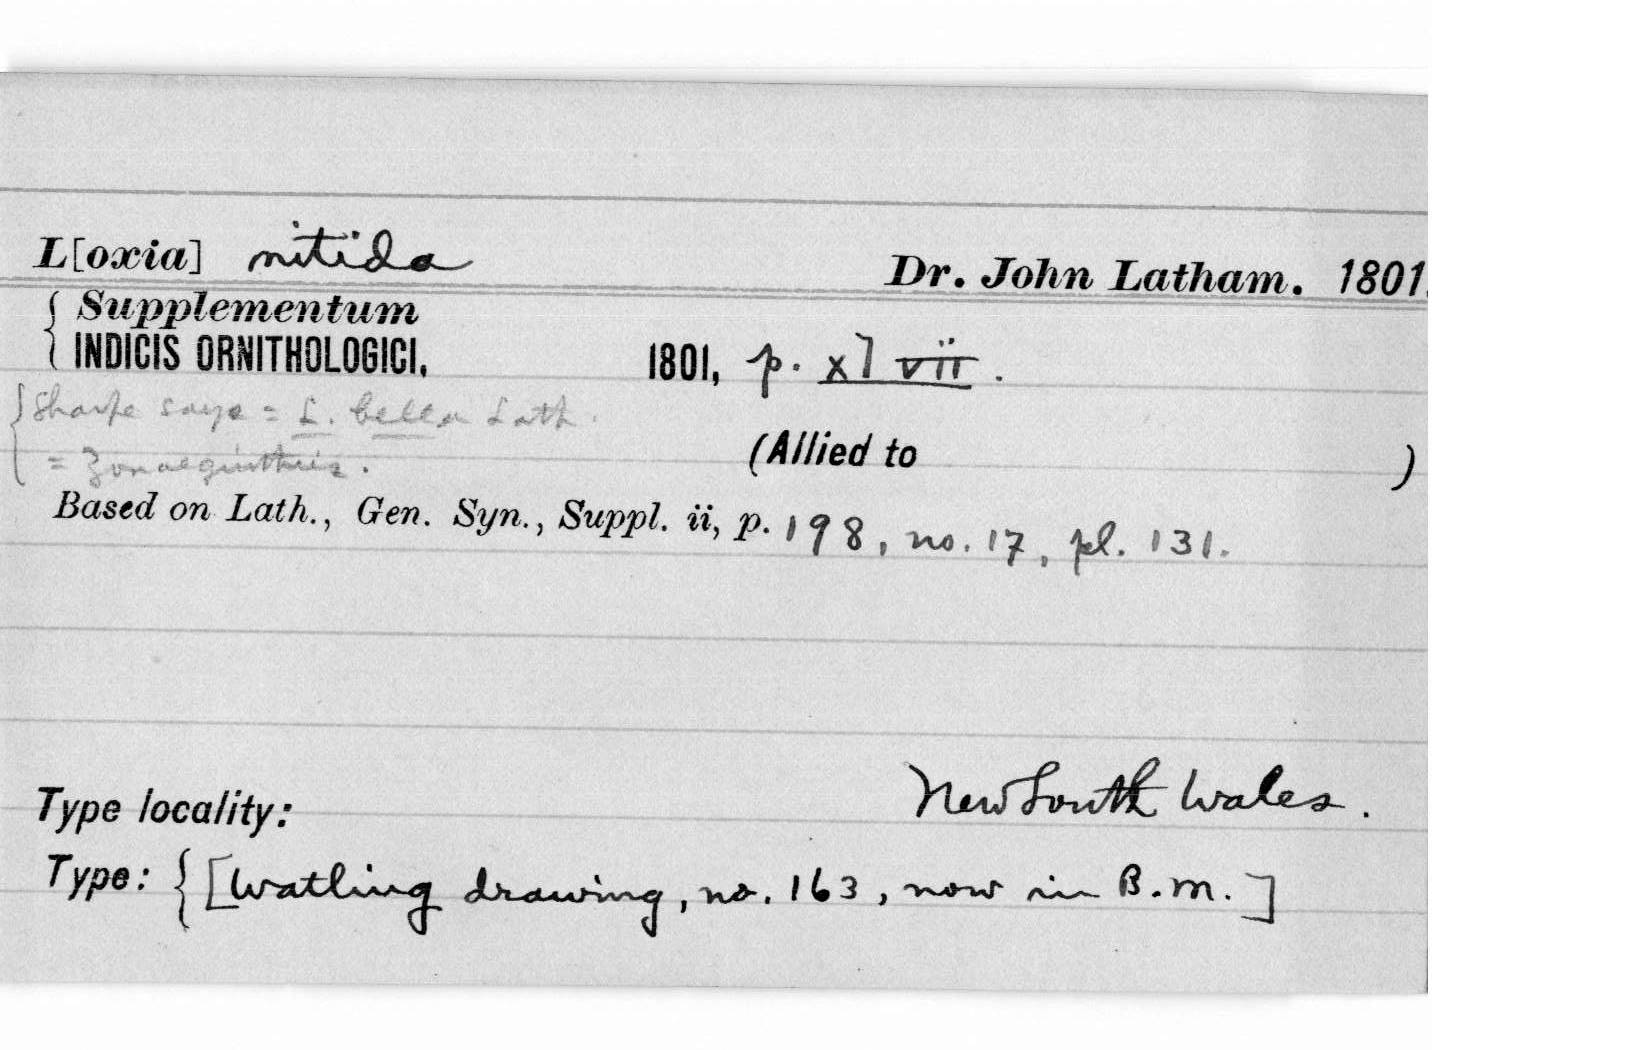 L[oxia] nitida Dr. John Latham. 1801.
{ Supplementum
INDICIS ORNITHOLOGICI, 1801, p. xlvii.
{ Sharpe says = L. bella Lath.
= Zonaeginthus. (Allied to )
Based on Lath., Gen. Syn., Suppl. ii, p. 198, no. 17, pl. 131.
Type locality: New South Wales.
Type: { [Watling drawing, no. 163, now in B.M.]